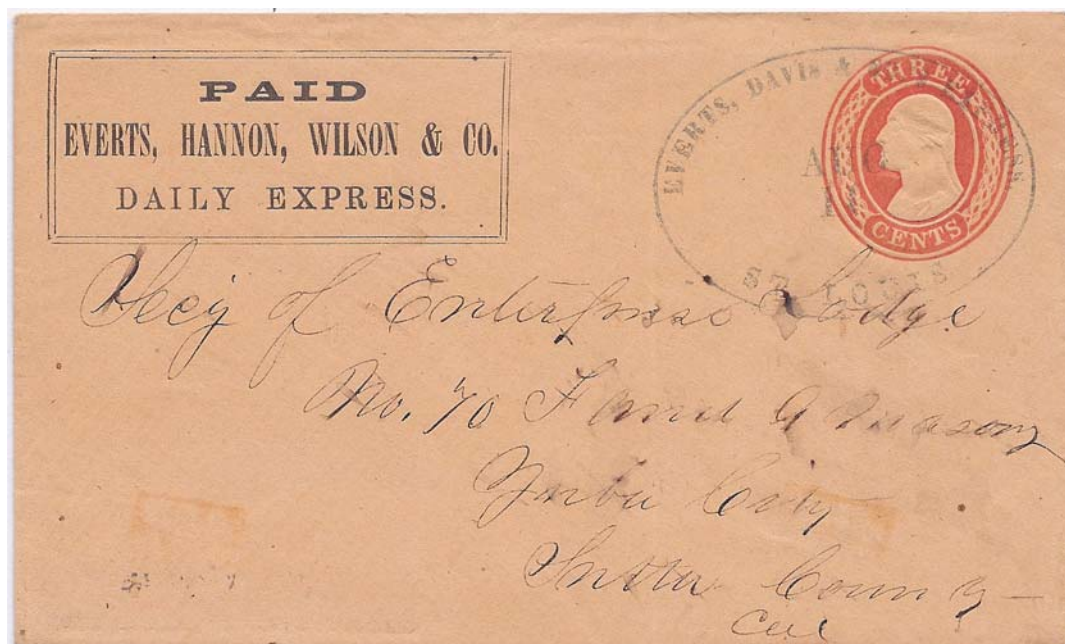 PAID
EVERTS, HANNON, WILSON & CO.
DAILY EXPRESS.
EVERTS, DAVIS &
ST LOUIS
THREE
CENTS
Secy of Enterprise Lodge
No. 70 F and A Masons
Yuba City
Sutter County
Cal